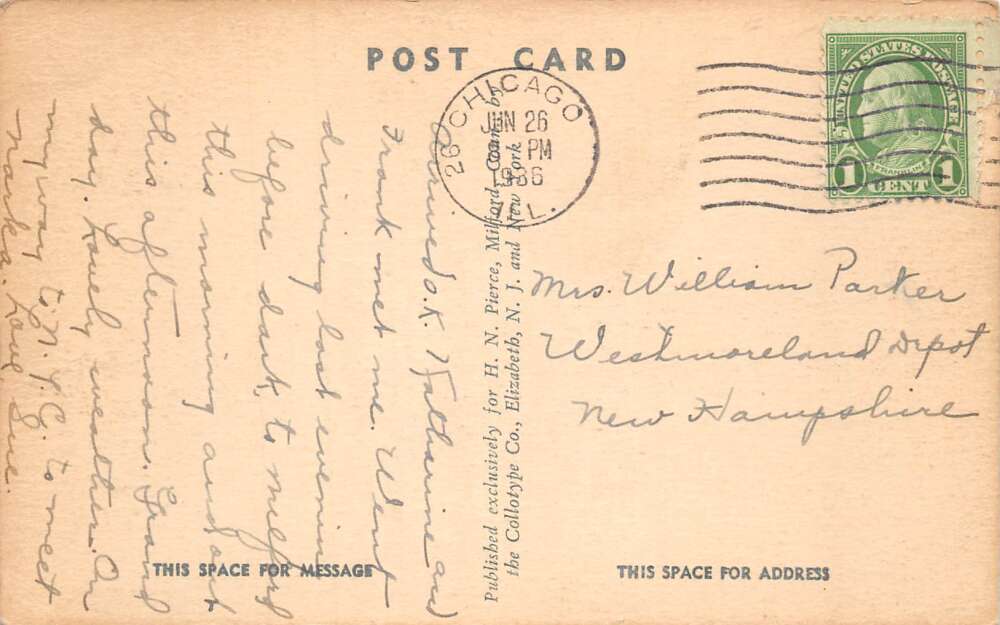 POST CARD
CHICAGO
JUN 26
PM
1936
ILL.
26
UNITED STATES POSTAGE
FRANKLIN
1 CENT 1
Arrived O.K. Katherine and
Frank met me. Went
driving last evening
before dark, to Milford
this morning and out
this afternoon. Grand
day. Lovely weather. On
my way to N.Y.C. to meet
Love, Sue.
Published exclusively for H. N. Pierce, Milford, Conn. by
the Collotype Co., Elizabeth, N. J. and New York
Mrs. William Parker
Westmoreland Depot
New Hampshire
THIS SPACE FOR MESSAGE
THIS SPACE FOR ADDRESS